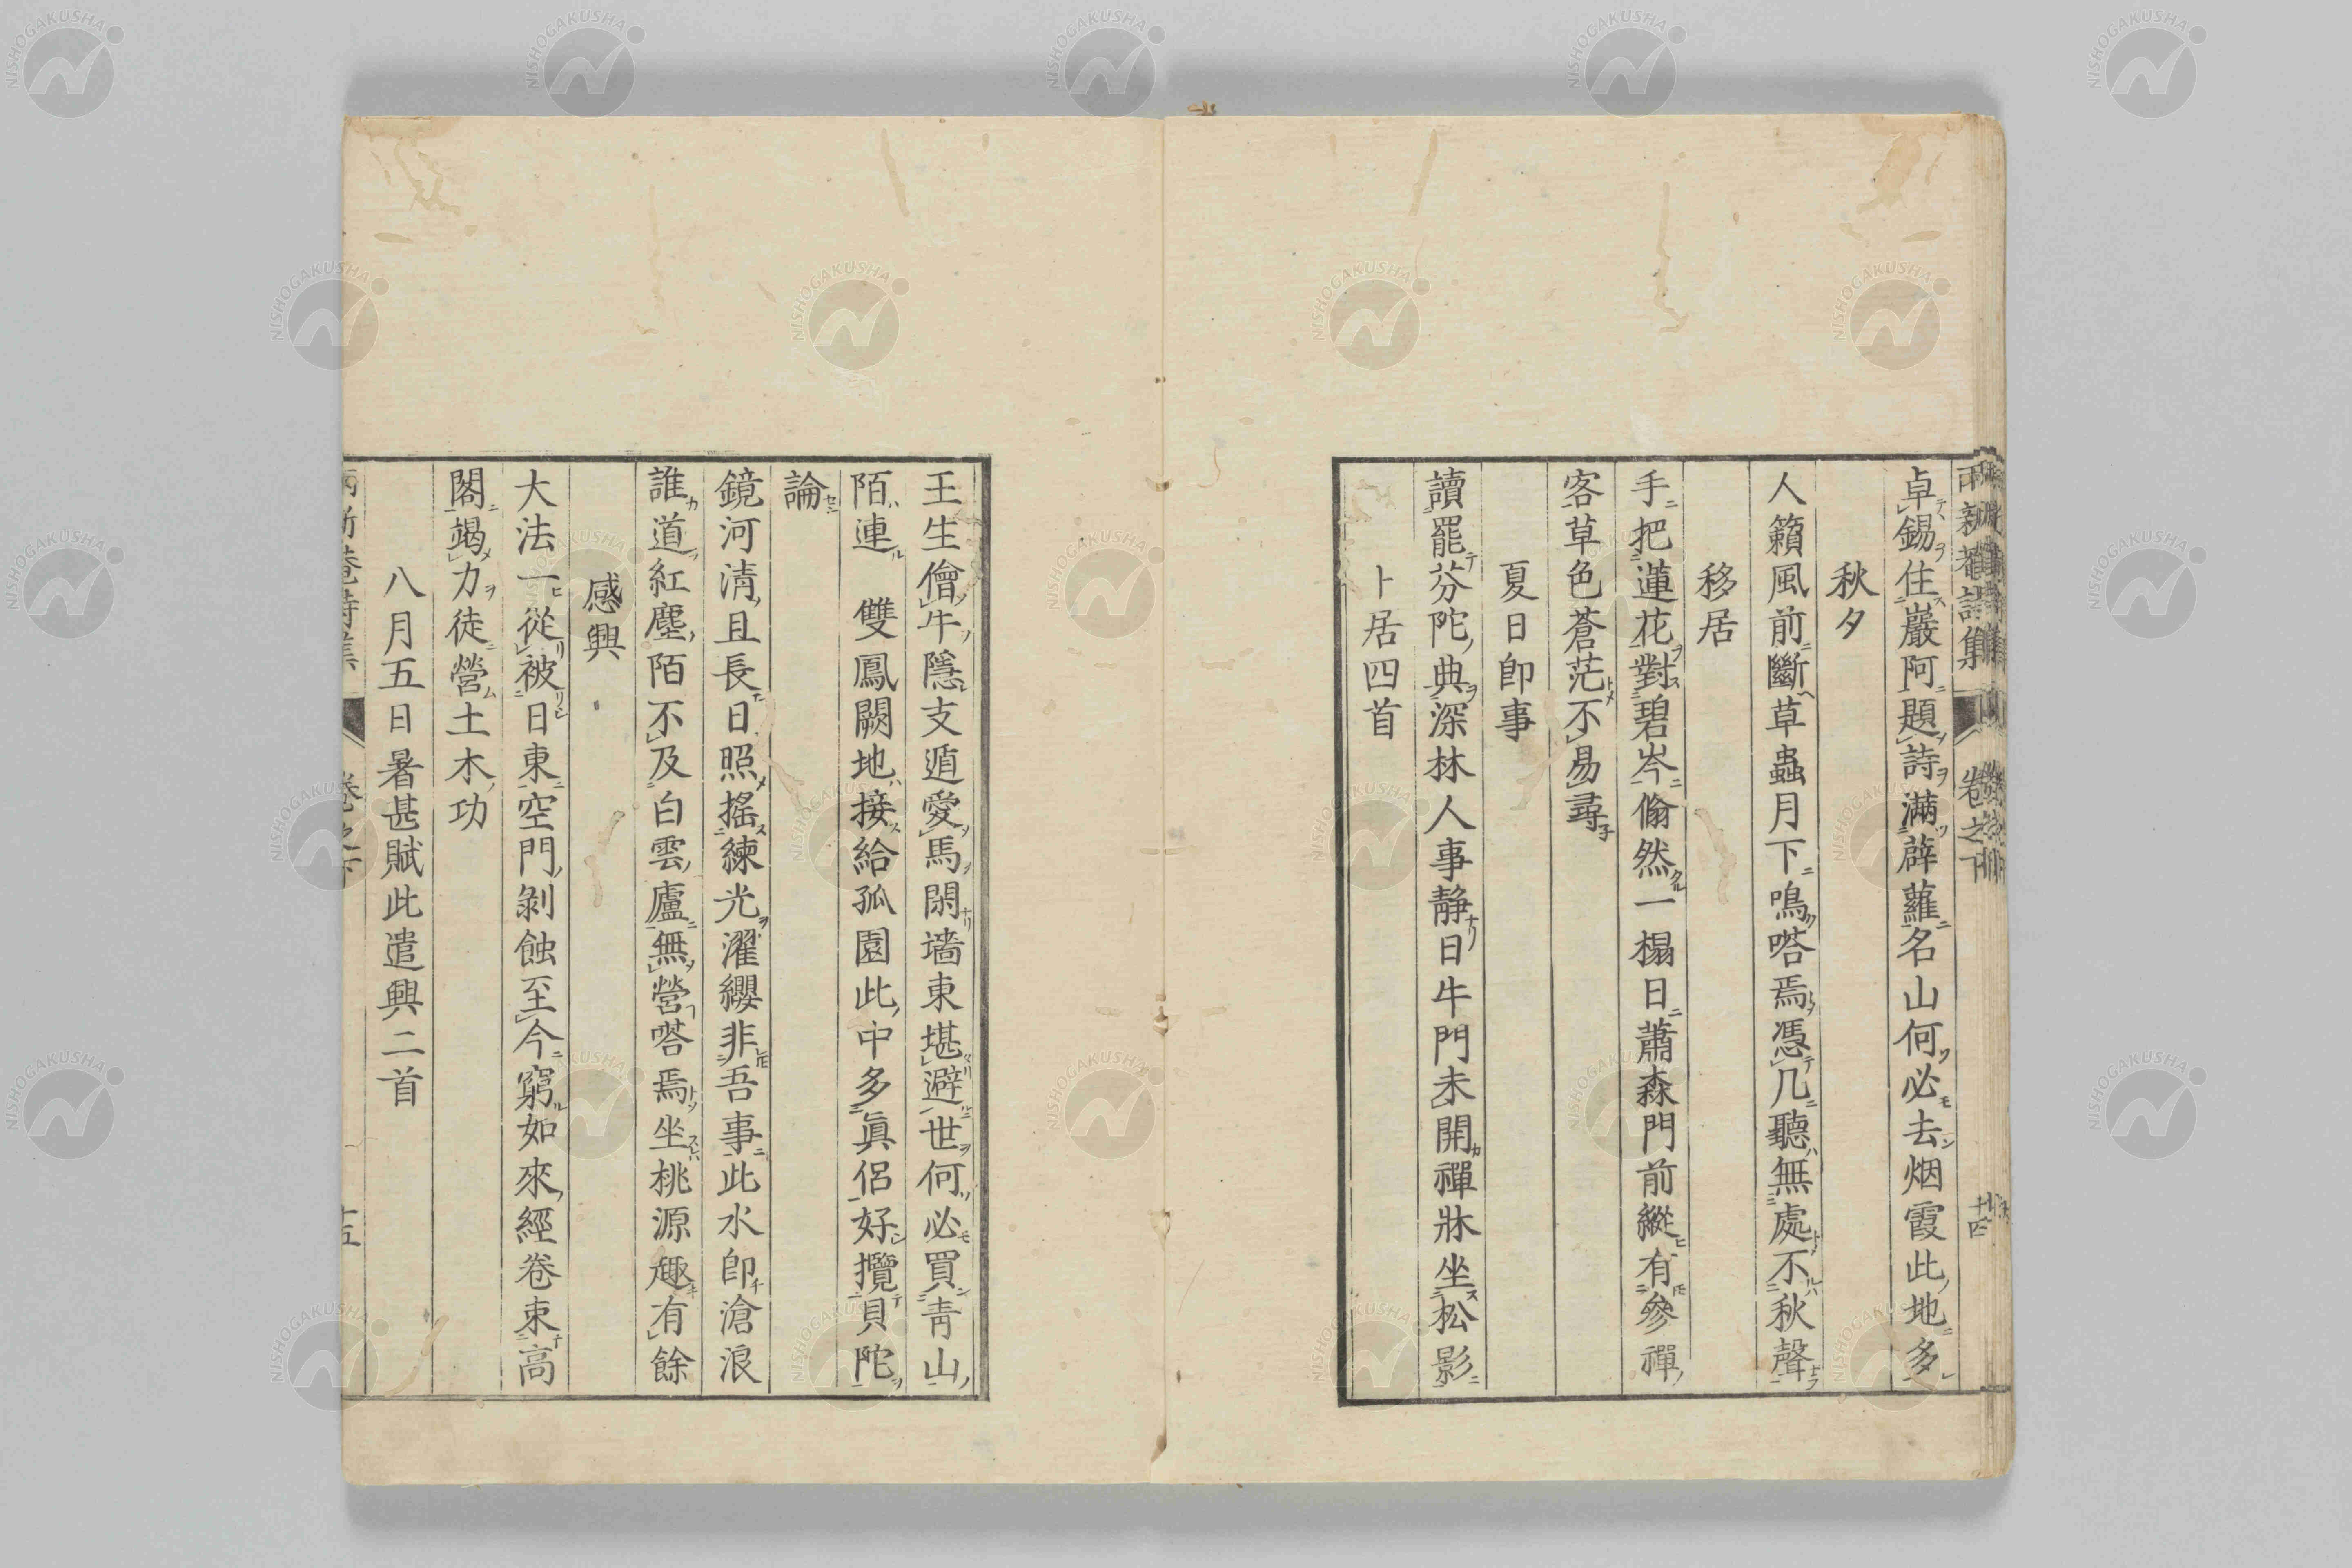 卓錫住巖阿題詩滿薜蘿名山何必去烟霞此地多
秋夕
人籟風前斷草蟲月下鳴嗒焉憑几聽無處不秋聲
移居
手把蓮花對碧岑翛然一榻日蕭森門前縱有參禪
客草色蒼茫不易尋
夏日卽事
讀罷芬陀典深林人事靜日午門未開禪牀坐松影
卜居四首
王生儈牛隱支遁愛馬閑墻東堪避世何必買靑山
陌連雙鳳闕地接給孤園此中多眞侶好攬貝陀
論
鏡河淸且長日照搖練光濯纓非吾事此水卽滄浪
誰道紅塵陌不及白雲廬無營嗒焉坐桃源趣有餘
感興
大法一從被日東空門剝蝕至今窮如來經卷束高
閣竭力徒營土木功
八月五日暑甚賦此遣興二首
卷之下
十五
NISHOGAKUSHA